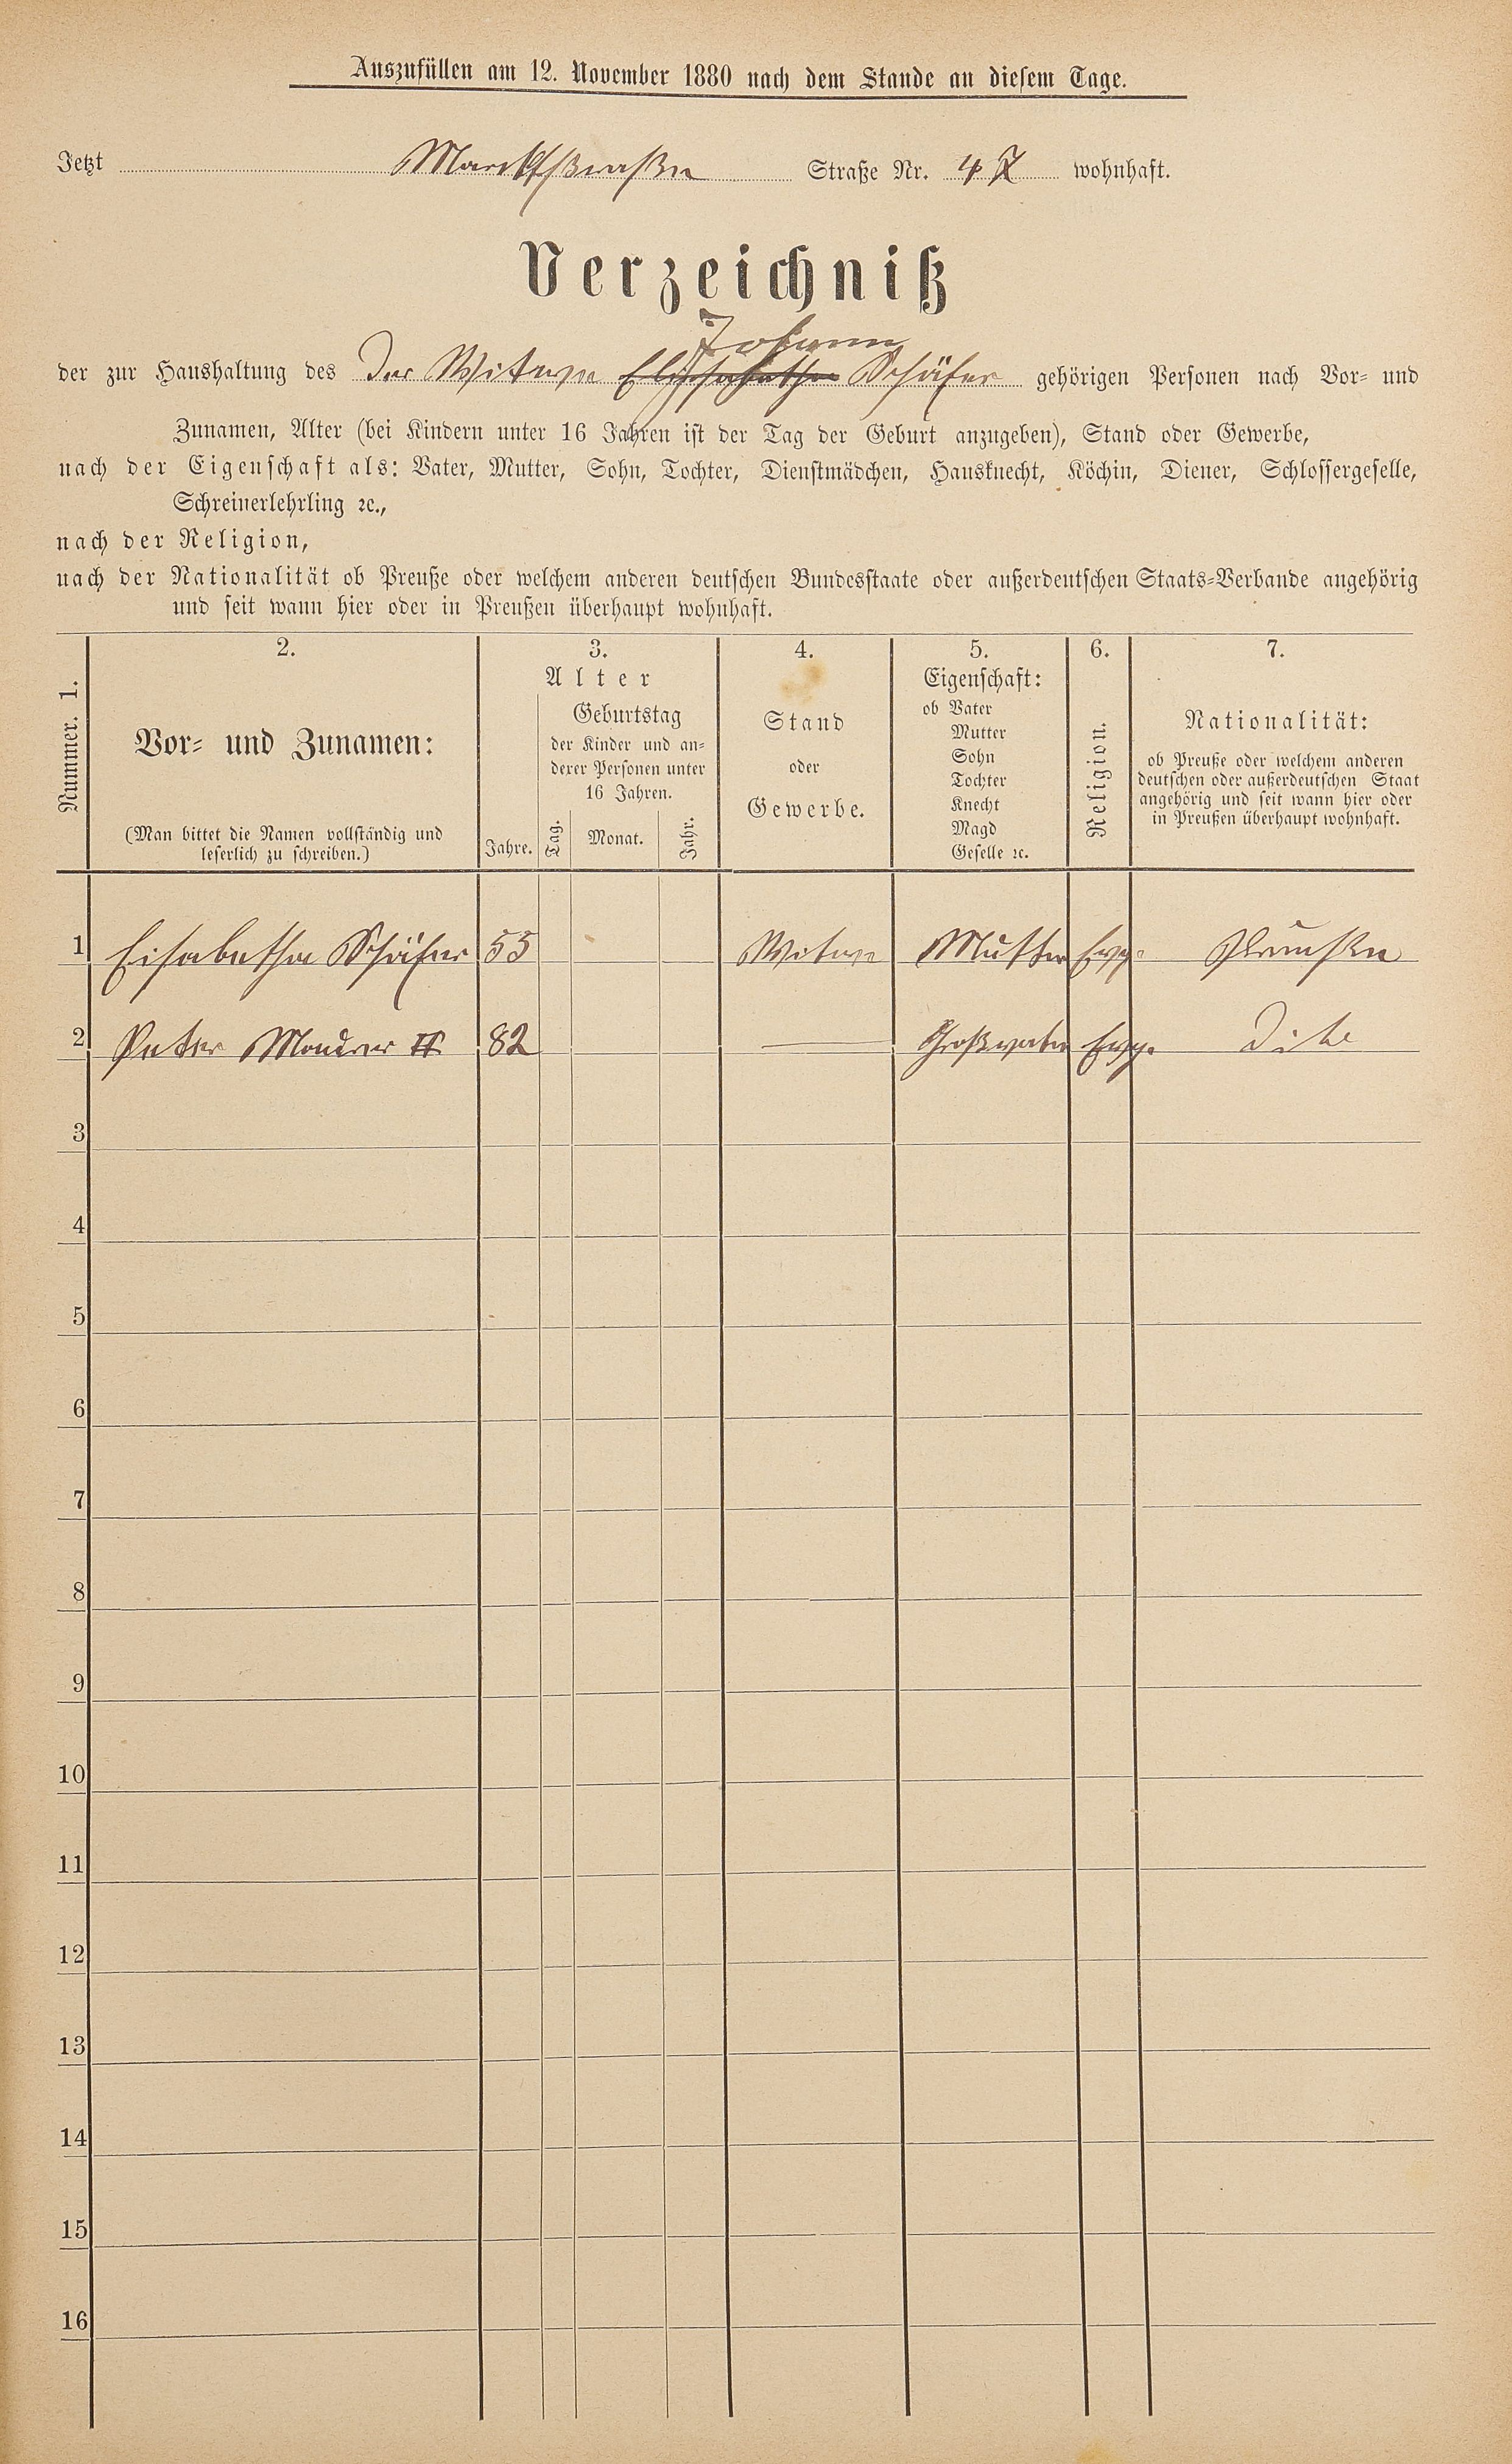 Auszufüllen am 12. November 1880 nach dem Stande an diesem Tage.
Jetzt Marktstraße Straße Nr. 47 wohnhaft.
Verzeichniß
Johann
der zur Haushaltung des Der Witwe Elisabetha Schäfer gehörigen Personen nach Vor- und
Zunamen, Alter (bei Kindern unter 16 Jahren ist der Tag der Geburt anzugeben), Stand oder Gewerbe,
nach der Eigenschaft als: Vater, Mutter, Sohn, Tochter, Dienstmädchen, Hausknecht, Köchin, Diener, Schlossergeselle,
Schreinerlehrling ꝛc.,
nach der Religion,
nach der Nationalität ob Preuße oder welchem anderen deutschen Bundesstaate oder außerdeutschen Staats-Verbande angehörig
und seit wann hier oder in Preußen überhaupt wohnhaft.
Nummer. 1.
2.
Vor- und Zunamen:
(Man bittet die Namen vollständig und
leserlich zu schreiben.)
3.
Alter
Jahre.
Geburtstag
der Kinder und an-
derer Personen unter
16 Jahren.
Tag. Monat. Jahr.
4.
Stand
oder
Gewerbe.
5.
Eigenschaft:
ob Vater
Mutter
Sohn
Tochter
Knecht
Magd
Geselle ꝛc.
6.
Religion.
7.
Nationalität:
ob Preuße oder welchem anderen
deutschen oder außerdeutschen Staat
angehörig und seit wann hier oder
in Preußen überhaupt wohnhaft.
1 Elisabetha Schäfer 55 Witwe Mutter Evg. Preußen
2 Peter Maurer II 82 — Großvater Evg. Dito
3
4
5
6
7
8
9
10
11
12
13
14
15
16